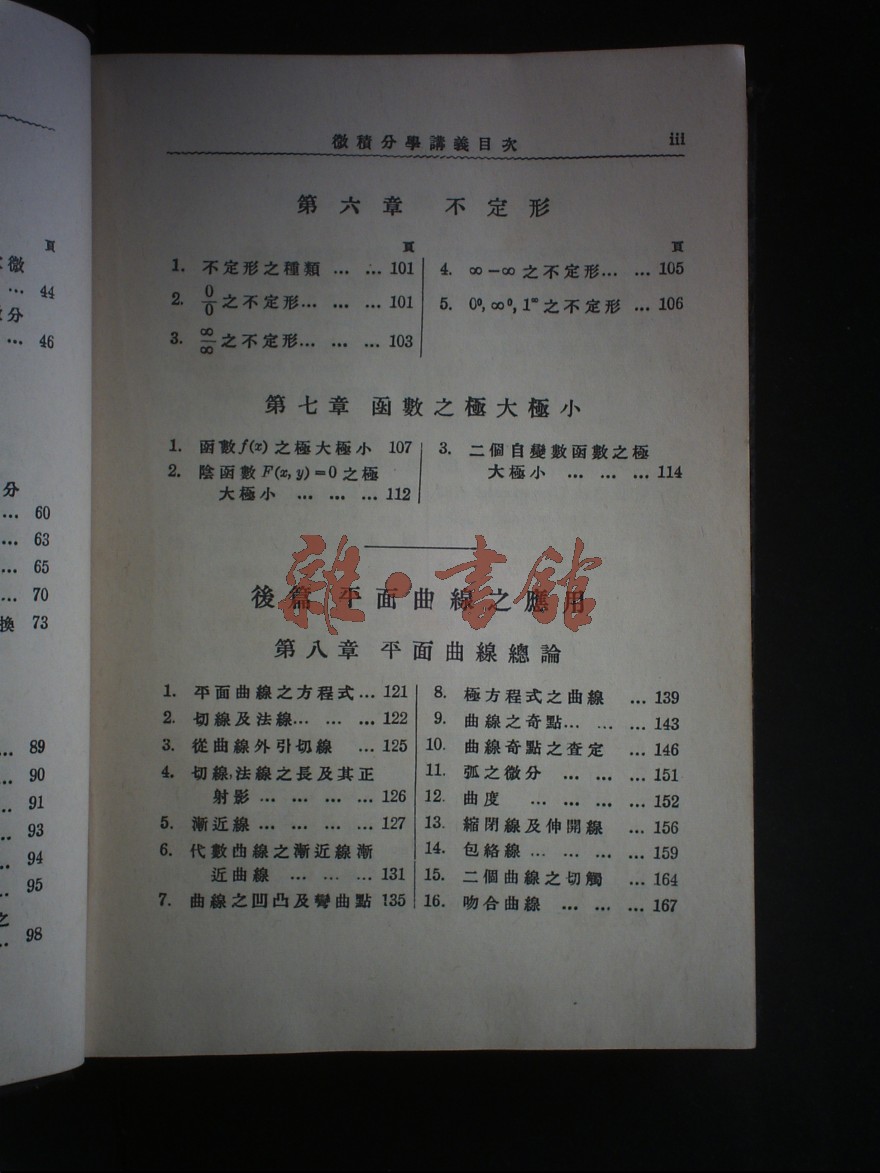 微積分學講義目次 iii
第六章 不定形
頁
1. 不定形之種類 … … 101
2. 0/0 之不定形… … … 101
3. ∞/∞ 之不定形… … … 103
頁
4. ∞－∞ 之不定形… … 105
5. 0⁰, ∞⁰, 1^∞ 之不定形 … 106
第七章 函數之極大極小
1. 函數 f(x) 之極大極小 107
2. 陰函數 F(x, y)=0 之極
大極小 … … … 112
3. 二個自變數函數之極
大極小 … … … 114
後篇 平面曲線之應用
第八章 平面曲線總論
1. 平面曲線之方程式 … 121
2. 切線及法線… … … 122
3. 從曲線外引切線 … 125
4. 切線,法線之長及其正
射影 … … … … 126
5. 漸近線 … … … … 127
6. 代數曲線之漸近線漸
近曲線 … … … 131
7. 曲線之凹凸及彎曲點 135
8. 極方程式之曲線 … 139
9. 曲線之奇點… … … 143
10. 曲線奇點之査定 … 146
11. 弧之微分 … … … 151
12. 曲度 … … … … 152
13. 縮閉線及伸開線 … 156
14. 包絡線 … … … … 159
15. 二個曲線之切觸 … 164
16. 吻合曲線 … … … 167
雜·書館
頁
微
… 44
分
… 46
分
… 60
… 63
… 65
… 70
換 73
… 89
… 90
… 91
… 93
… 94
… 95
之
… 98